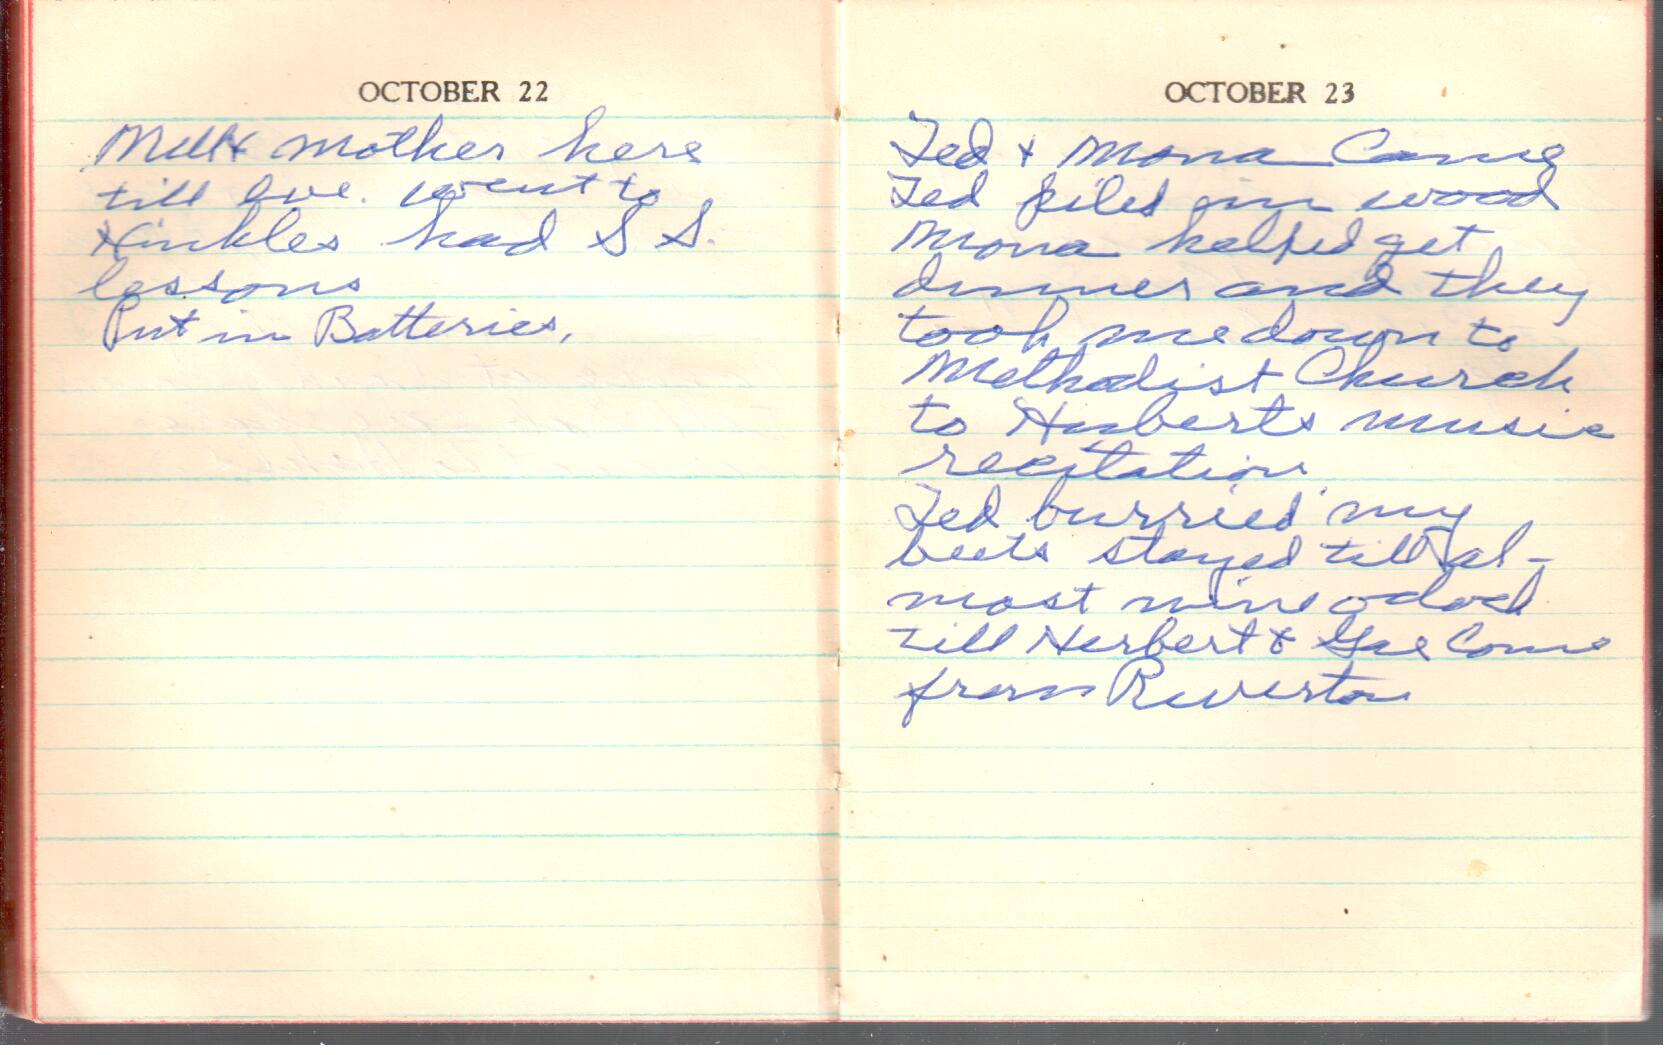 OCTOBER 22
Mell & mother here
till eve. went to
Hinkles had S S.
lessons
Put in Batteries,
OCTOBER 23
Ted & Mona Came
Ted piled in wood
Mona helped get
dinner and they
took me down to
Methodist Church
to Huberts music
recitation
Ted burried my
beets stayed till al-
most nine oclock
till Herbert & Gae Come
from Riverton